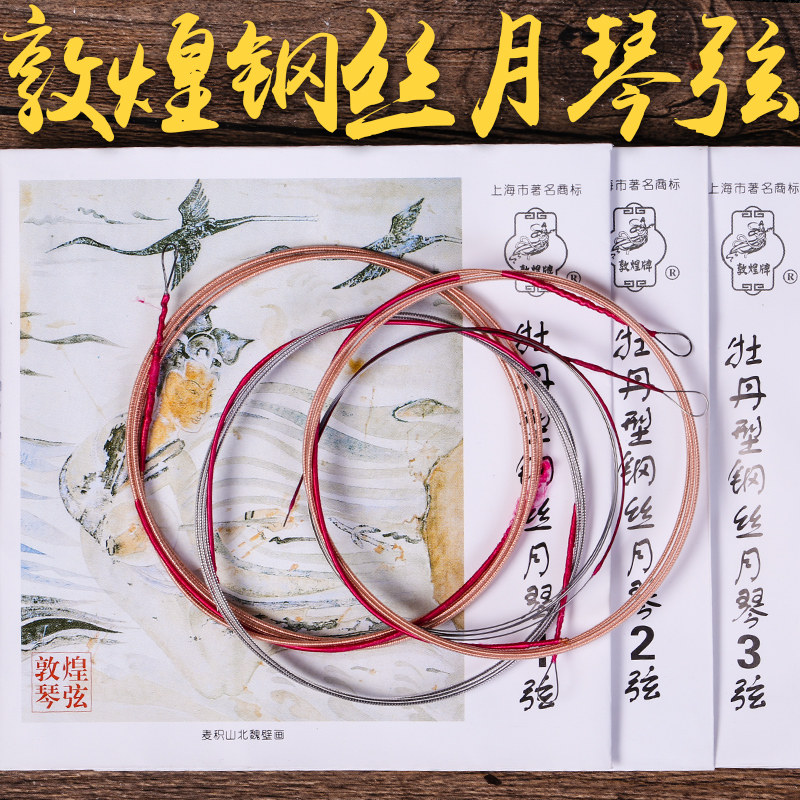 敦煌钢丝月琴弦
上海市著名商标
敦煌牌
®
牡丹型钢丝月琴
1弦
敦煌
琴弦
麦积山北魏壁画
市著名商标
敦煌牌
®
牡丹型钢丝月琴2弦
上海市著名商标
敦煌牌
®
牡丹型钢丝月琴3弦